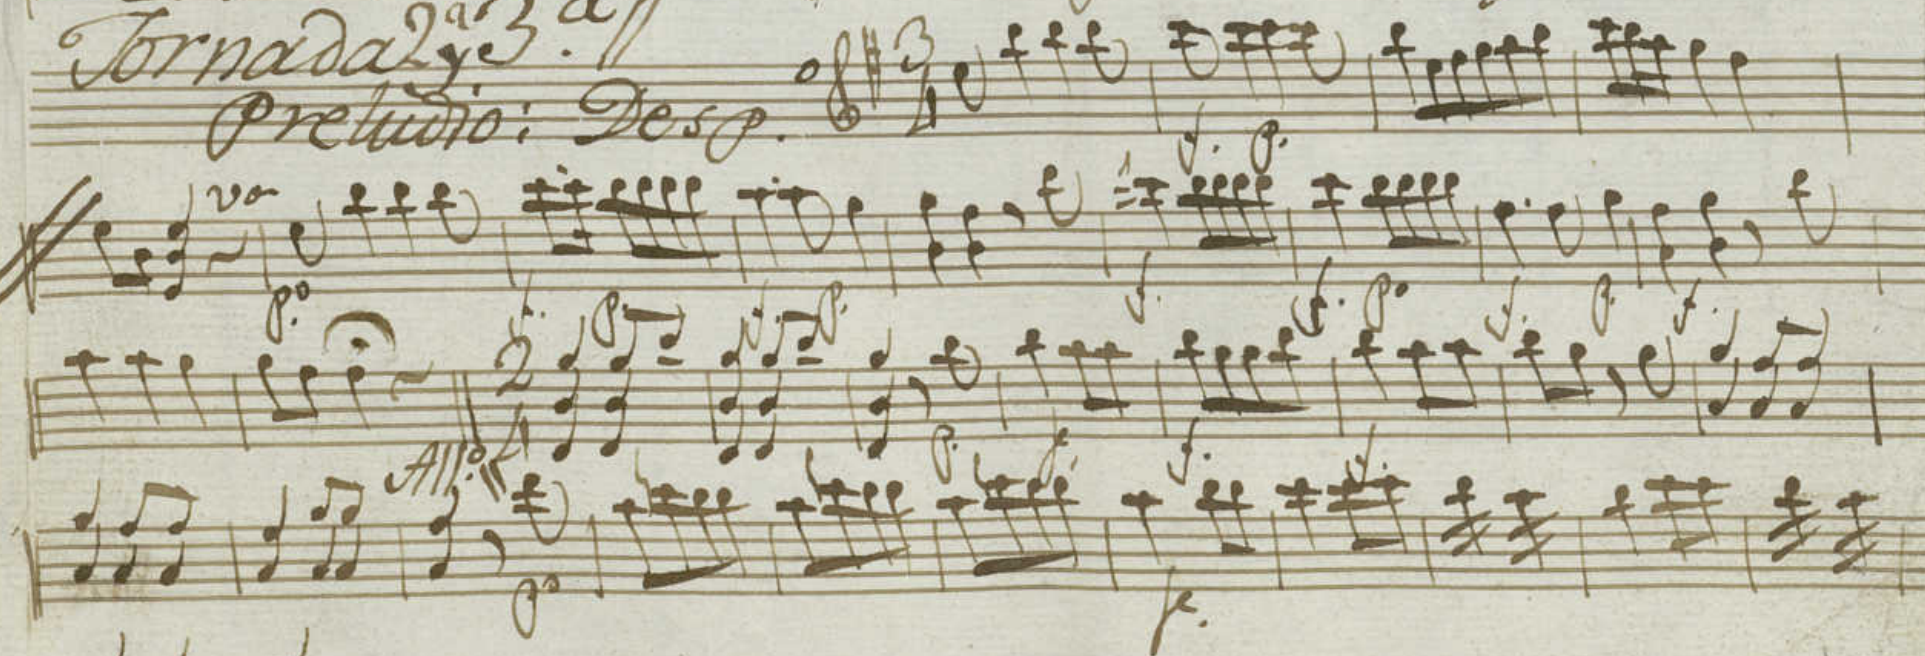 Jornada 2ª y 3.ª
Preludio: Desp.º 3/4
f. p.
p.º f. p. f. p. f. f. p.º f. p. f.
2/4
All.º p. f. f. f.
p.º f.